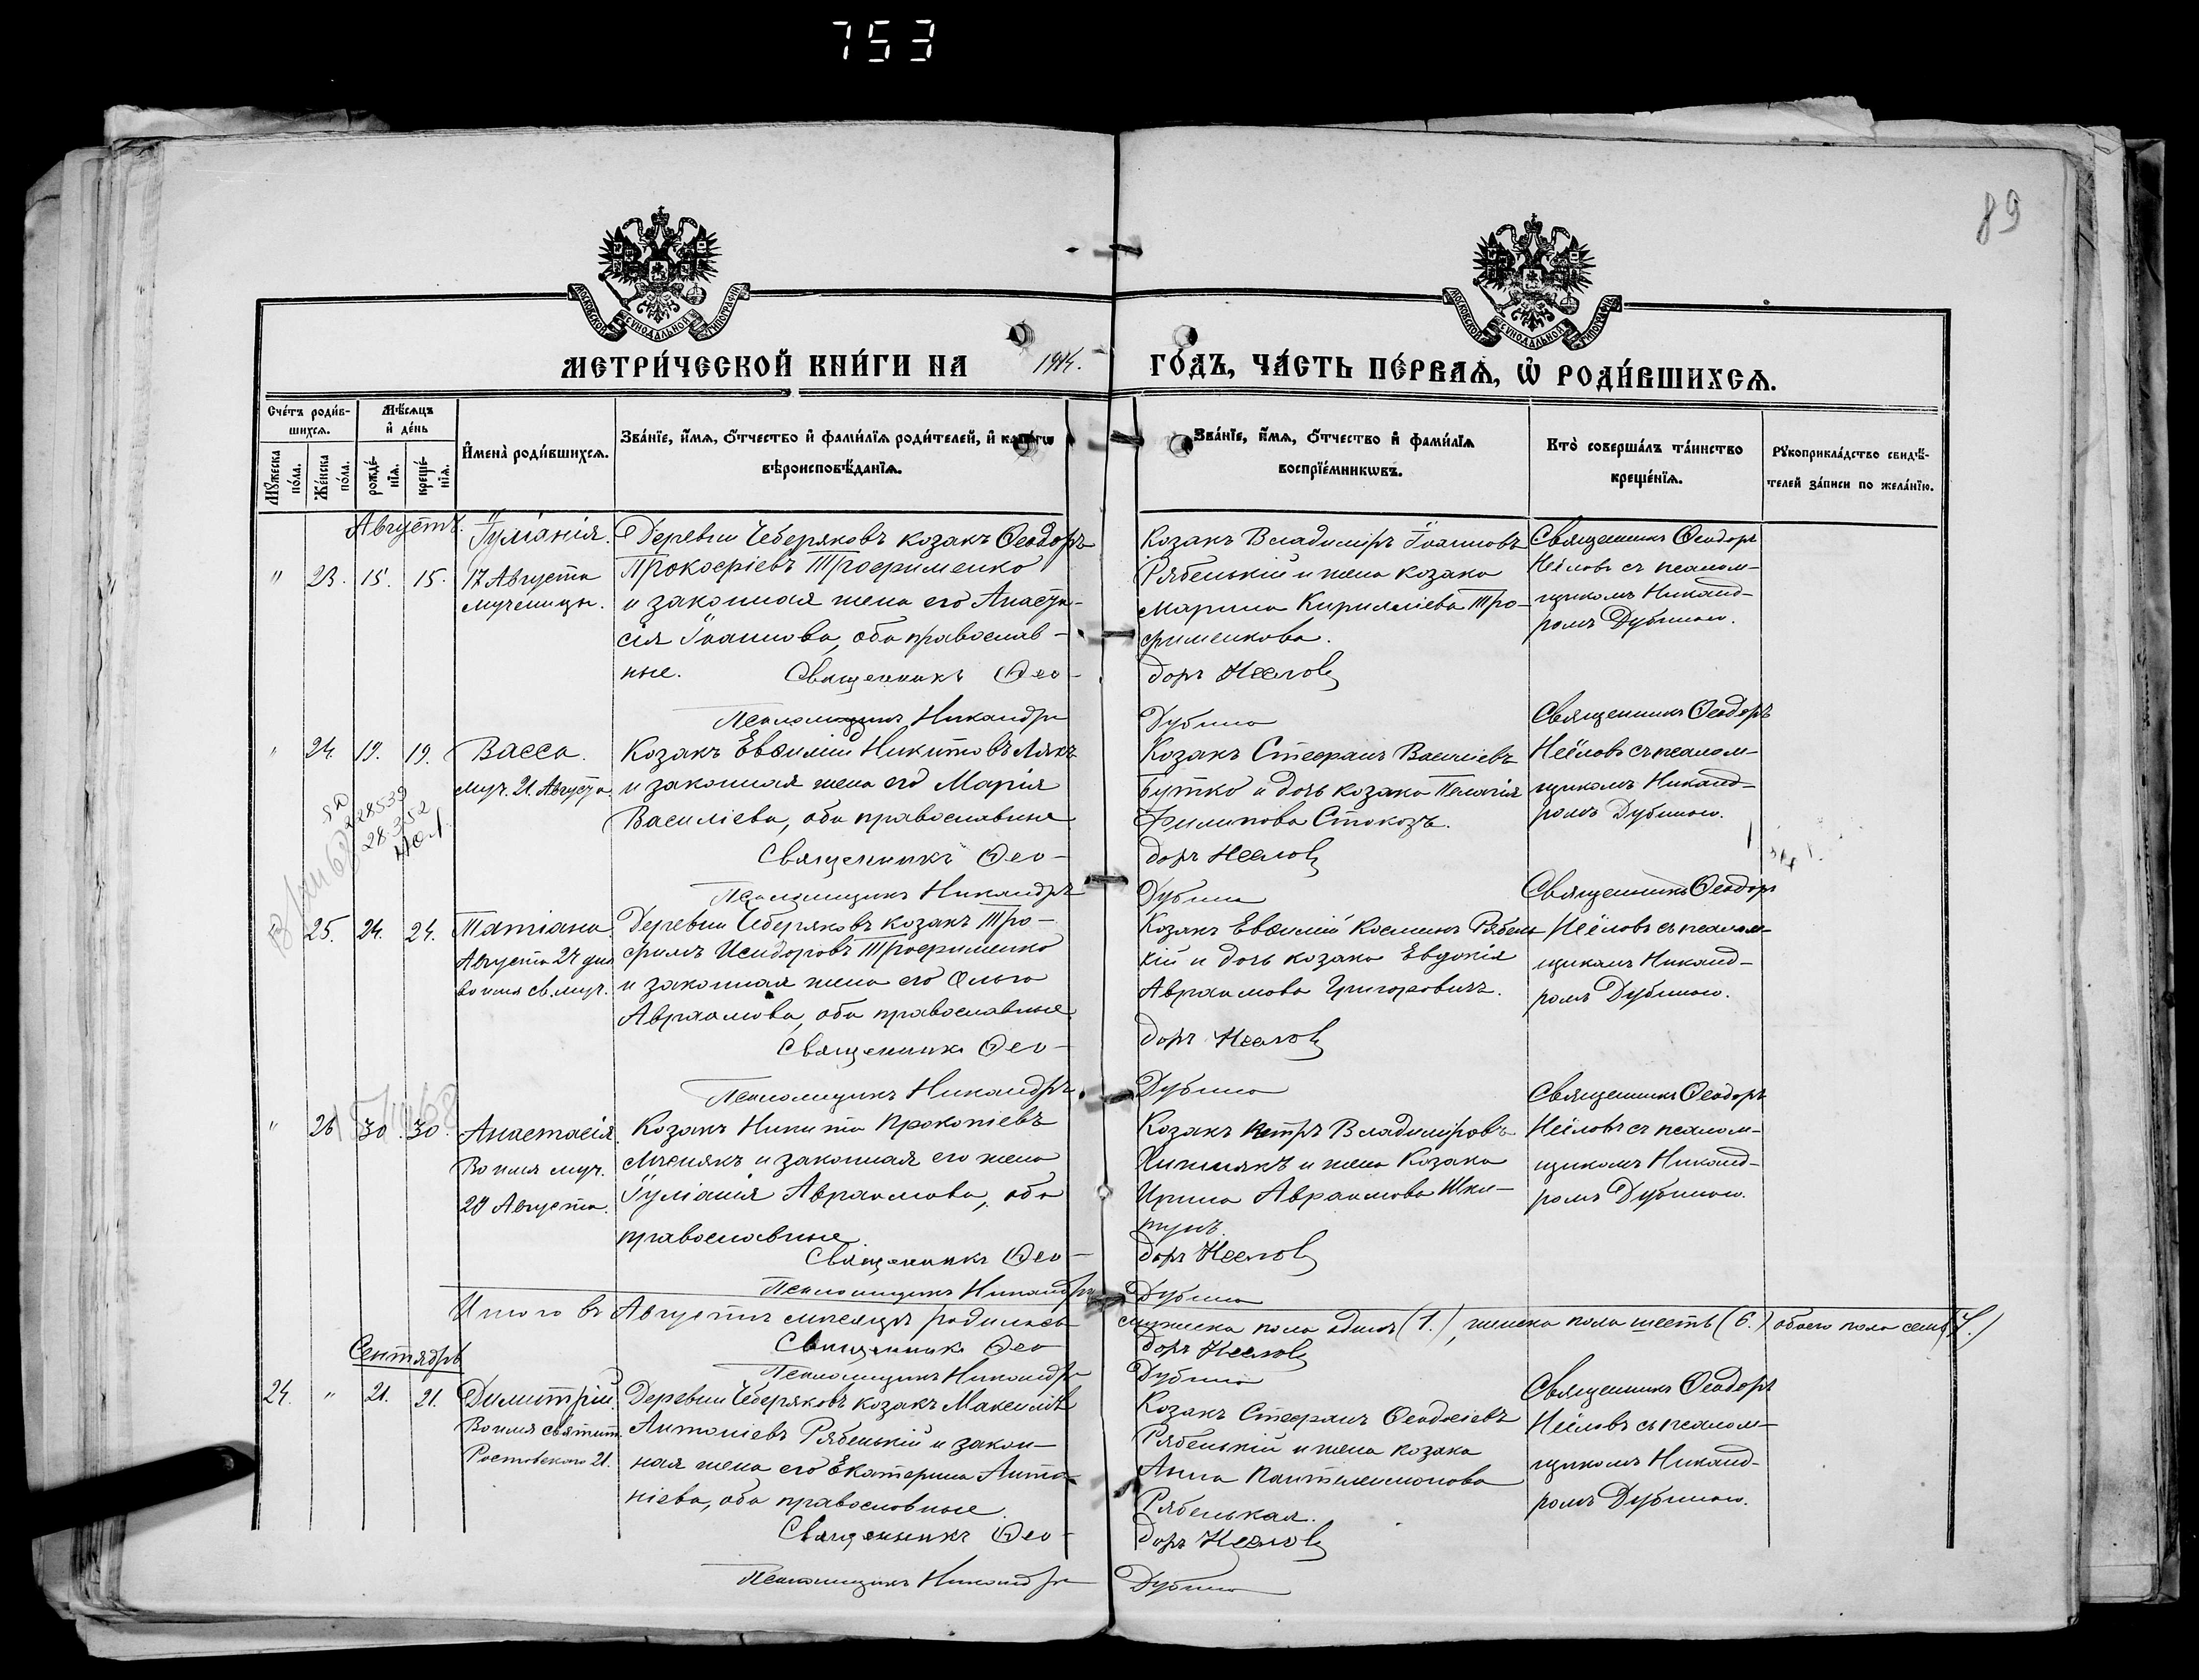 753
89
МОСКОВСКОЙ СѴНОДАЛЬНОЙ ТИПОГРАФІИ
МОСКОВСКОЙ СѴНОДАЛЬНОЙ ТИПОГРАФІИ
МЕТРИ́ЧЕСКОЙ КНИ́ГИ НА 1914. ГО́ДЪ, ЧА́СТЬ ПЕ́РВАЯ, Ѡ҆ РОДИ́ВШИХСЯ.
Сче́тъ роди́в-
шихся.
Мѣ́сяцъ
и҆ де́нь
Мꙋ́жеска
по́ла.
Же́нска
по́ла.
рожде́-
нїя.
креще́-
нїя.
И҆мена̀ роди́вшихся.
Зва́нїе, и҆́мя, ѻ҆́тчество и҆ фами́лїя роди́телей, и҆ како́гѡ
вѣроисповѣ́данїя.
Зва́нїе, и҆́мя, ѻ҆́тчество и҆ фами́лїя
воспрїе́мникѡвъ.
Кто̀ соверша́лъ та́инство
креще́нїя.
Рꙋкоприкла́дство свидѣ́-
телей за́писи по жела́нїю.
Августъ.
" 23. 15. 15.
Іуліанія.
17 Августа
мученицы.
Деревни Чеберяковъ козакъ Ѳеодоръ
Прокофіевъ Трофименко
и законная жена его Анаста-
сія Іоаннова, оба православ-
ные.
Священникъ Ѳео-
Псаломщикъ Никандръ
Козакъ Владиміръ Іоанновъ
Рябенькій и жена козака
Марина Кирилліева Тро-
фименкова.
доръ Нееловъ
Дубина
Священникъ Ѳеодоръ
Нееловъ съ псалом-
щикомъ Никанд-
ромъ Дубиною.
" 24. 19. 19.
Васса.
муч. 21 Августа.
Козакъ Евѳимій Никитовъ Ляхъ
и законная жена его Марія
Василіева, оба православные
Священникъ Ѳео-
Псаломщикъ Никандръ
Козакъ Стефанъ Василіевъ
Бутко и дочь козака Пелагія
Филипова Стокозъ.
доръ Нееловъ
Дубина
Священникъ Ѳеодоръ
Нееловъ съ псалом-
щикомъ Никанд-
ромъ Дубиною.
228539
28.352
25. 24. 24.
Татіана.
Августа 24 дня
во имя св. муч.
Деревни Чеберяковъ козакъ Тро-
фимъ Исидоровъ Трофименко
и законная жена его Ольга
Авраамова, оба православные.
Священникъ Ѳео-
Псаломщикъ Никандръ
Козакъ Евѳимій Косминъ Рябень-
кій и дочь козака Евдокія
Авраамова Григоровичъ.
доръ Нееловъ
Дубина
Священникъ Ѳеодоръ
Нееловъ съ псалом-
щикомъ Никанд-
ромъ Дубиною.
" 26 30. 30.
Анастасія.
Во имя муч.
29 Августа.
Козакъ Никита Прокопіевъ
и законная его жена
Іуліанія Авраамова, оба
православные.
Священникъ Ѳео-
Псаломщикъ Никандръ
Козакъ Петръ Владиміровъ
и жена Козака
Ирина Авраамова Шка-
пунъ.
доръ Нееловъ
Дубина
Священникъ Ѳеодоръ
Нееловъ съ псалом-
щикомъ Никанд-
ромъ Дубиною.
Итого въ Августѣ мѣсяцѣ родилось мужеска пола одинъ (1.), женска пола шесть (6.) обоего пола семь (7.)
Священникъ Ѳео- доръ Нееловъ
Псаломщикъ Никандръ Дубина
Сентябрь
24. " 21. 21.
Димитрій.
Во имя святит.
Ростовскаго 21.
Деревни Чеберяковъ козакъ Максимъ
Антоніевъ Рябенькій и закон-
ная жена его Екатерина Анто-
ніева, оба православные.
Священникъ Ѳео-
Псаломщикъ Никандръ
Козакъ Стефанъ Ѳеодосіевъ
Рябенькій и жена козака
Анна Пантелеимонова
Рябенькая.
доръ Нееловъ
Дубина
Священникъ Ѳеодоръ
Нееловъ съ псалом-
щикомъ Никанд-
ромъ Дубиною.